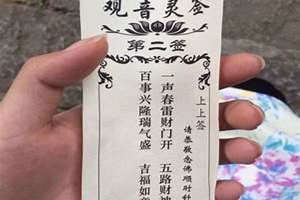 观音灵签
第二签
上上签
请恭敬念佛顺时针
一声春雷财门开 五路财神
百事兴隆瑞气盛 吉福如